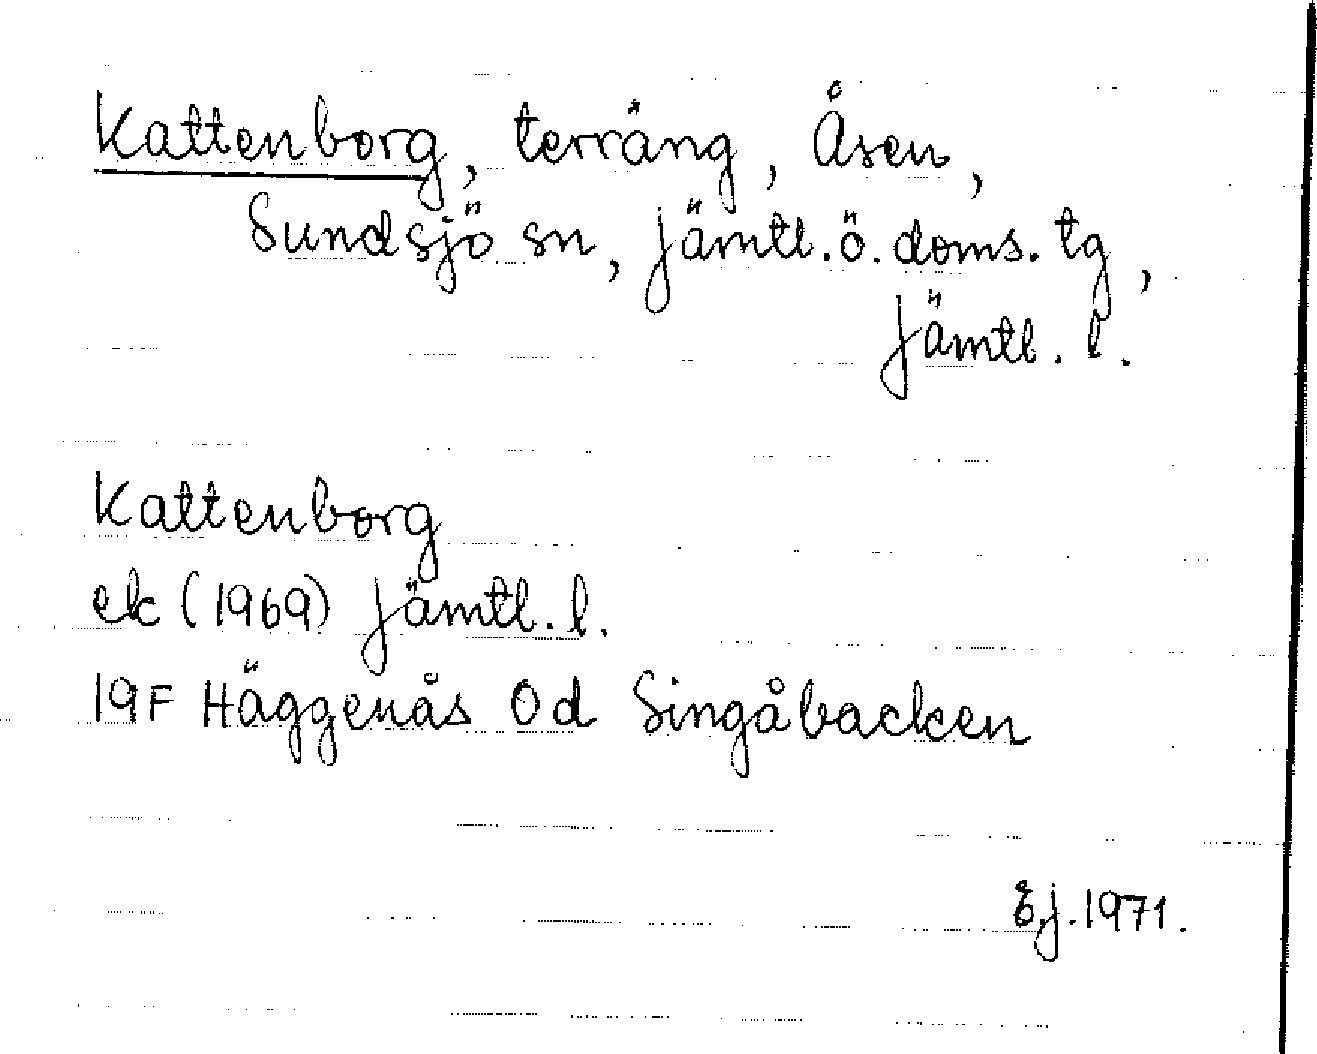 Kattenborg, terräng, Åsen,
Sundsjö sn, Jämtl. ö. doms. tg,
Jämtl. l.
Kattenborg
ek (1969) Jämtl. l.
19F Häggenås 0d Singåbacken
E.J. 1971.